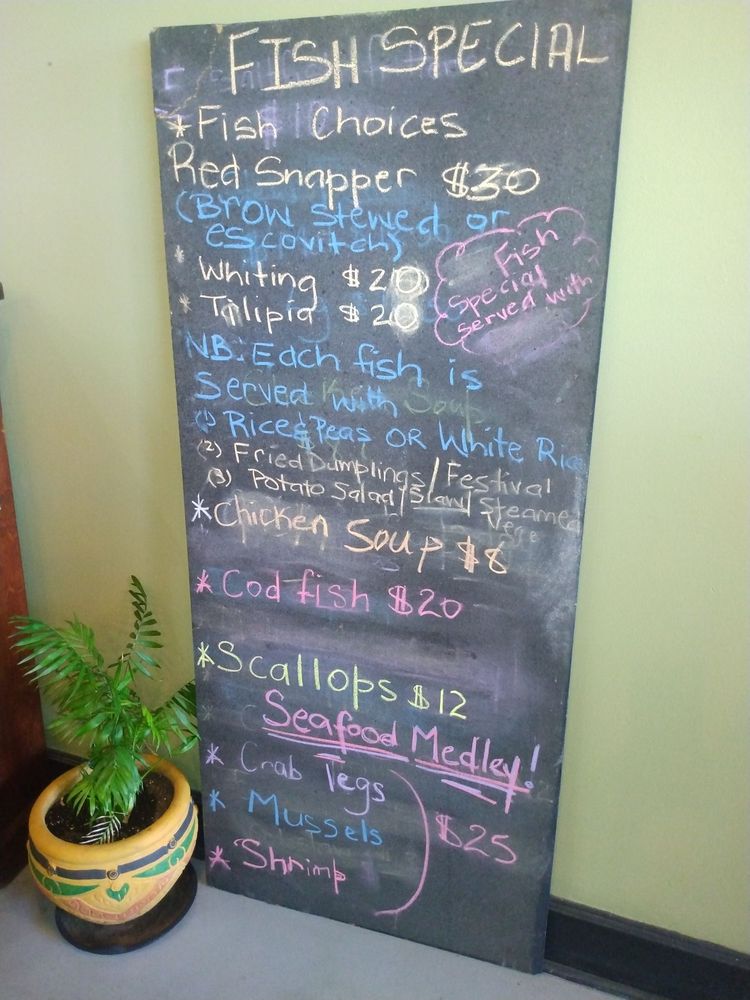 FISH SPECIAL
* Fish Choices
Red Snapper $30
(Brow stewed or
escovitch)
* Whiting $20
* Tilipia $20
Fish
Special
served with
NB: Each fish is
Served with
(1) Rice & Peas OR White Rice
(2) Fried Dumplings / Festival
(3) Potato Salad / Slaw / Steamed
Vege
* Chicken Soup $8
* Cod fish $20
* Scallops $12
Seafood Medley!
* Crab Legs
* Mussels
$25
* Shrimp